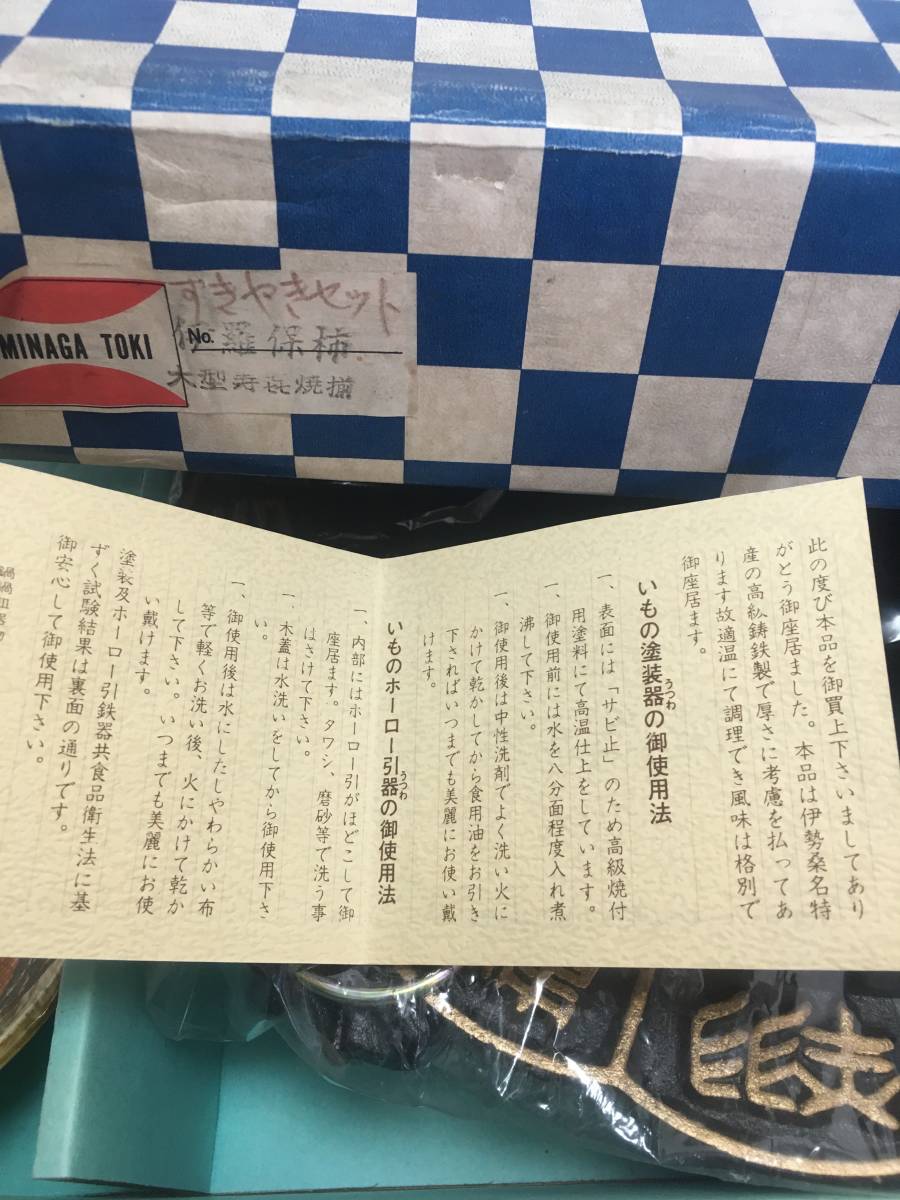 MINAGA TOKI
すきやきセット
No.
羅保柿
大型寿㐂焼揃
此の度び本品を御買上下さいましてあり
がとう御座居ました。本品は伊勢桑名特
産の高級鋳鉄製で厚さに考慮を払ってあ
ります故適温にて調理でき風味は格別で
御座居ます。
いもの塗装器の御使用法
うつわ
一、表面には「サビ止」のため高級焼付
用塗料にて高温仕上をしています。
一、御使用前には水を八分面程度入れ煮
沸して下さい。
一、御使用後は中性洗剤でよく洗い火に
かけて乾かしてから食用油をお引き
下さればいつまでも美麗にお使い戴
けます。
いものホーロー引器の御使用法
うつわ
一、内部にはホーロー引がほどこして御
座居ます。タワシ、磨砂等で洗う事
はさけて下さい。
一、木蓋は水洗いをしてから御使用下さ
い。
一、御使用後は水にしたしやわらかい布
等で軽くお洗い後、火にかけて乾か
して下さい。いつまでも美麗にお使
い戴けます。
塗装及ホーロー引鉄器共食品衛生法に基
ずく試験結果は裏面の通りです。
御安心して御使用下さい。